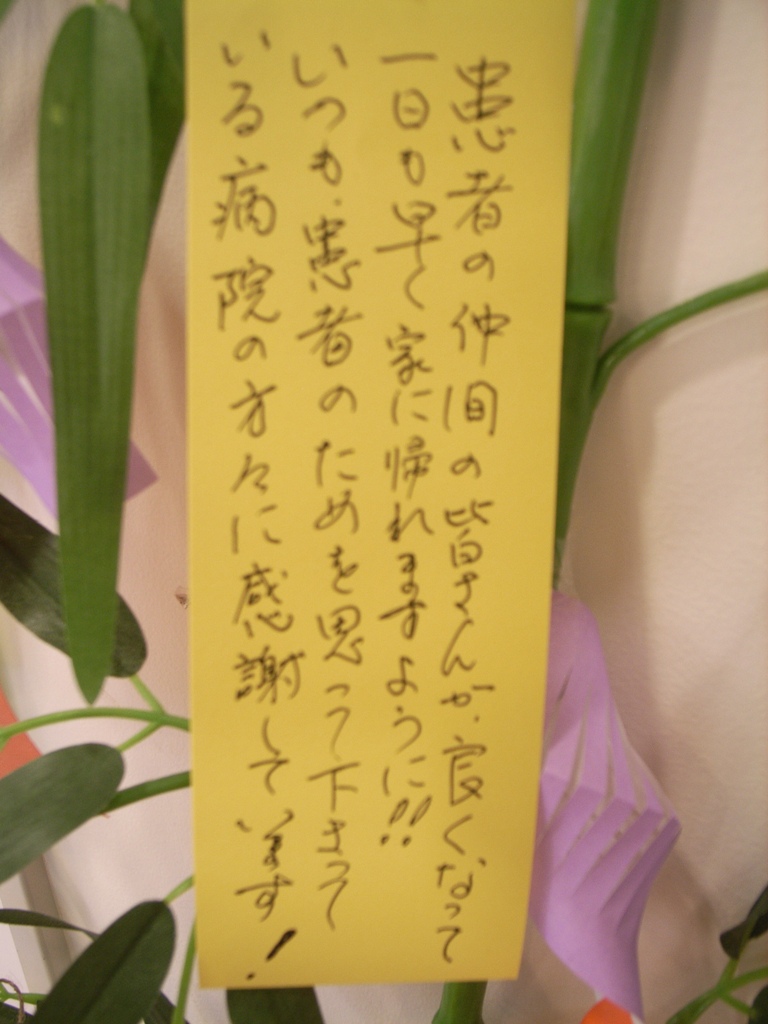 患者の仲間の皆さんが良くなって
一日も早く家に帰れますように!!
いつも患者のためを思って下さって
いる病院の方々に感謝しています!